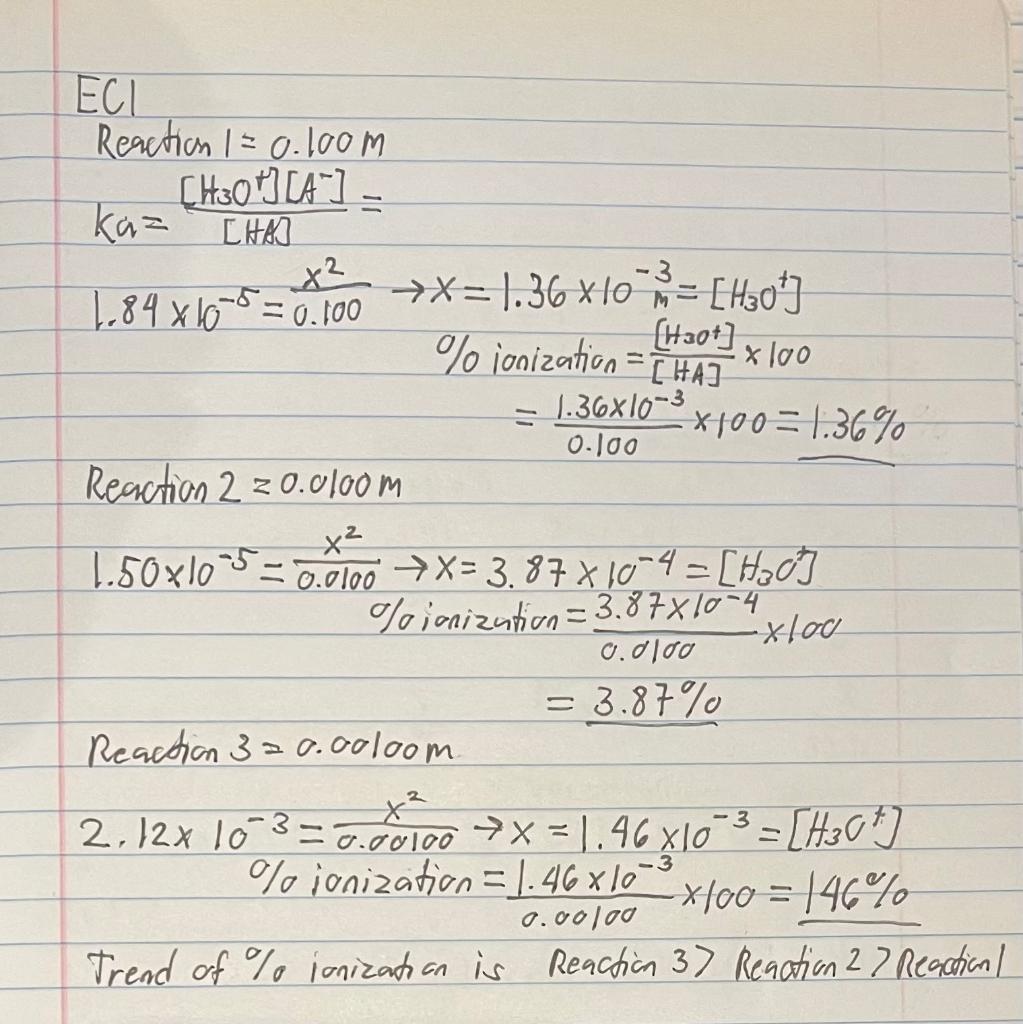 EC1
Reaction 1 = 0.100 M
Ka = [H3O+][A-] / [HA] =
1.84 x 10^-5 = x^2 / 0.100 → x = 1.36 x 10^-3 M = [H3O+]
% ionization = [H3O+] / [HA] x 100
= 1.36x10^-3 / 0.100 x 100 = 1.36%
Reaction 2 = 0.0100 M
1.50x10^-5 = x^2 / 0.0100 → x = 3.87 x 10^-4 = [H3O+]
% ionization = 3.87x10^-4 / 0.0100 x 100
= 3.87%
Reaction 3 = 0.00100 m
2.12 x 10^-3 = x^2 / 0.00100 → x = 1.46 x10^-3 = [H3O+]
% ionization = 1.46 x 10^-3 / 0.00100 x 100 = 146%
Trend of % ionization is Reaction 3 > Reaction 2 > Reaction 1